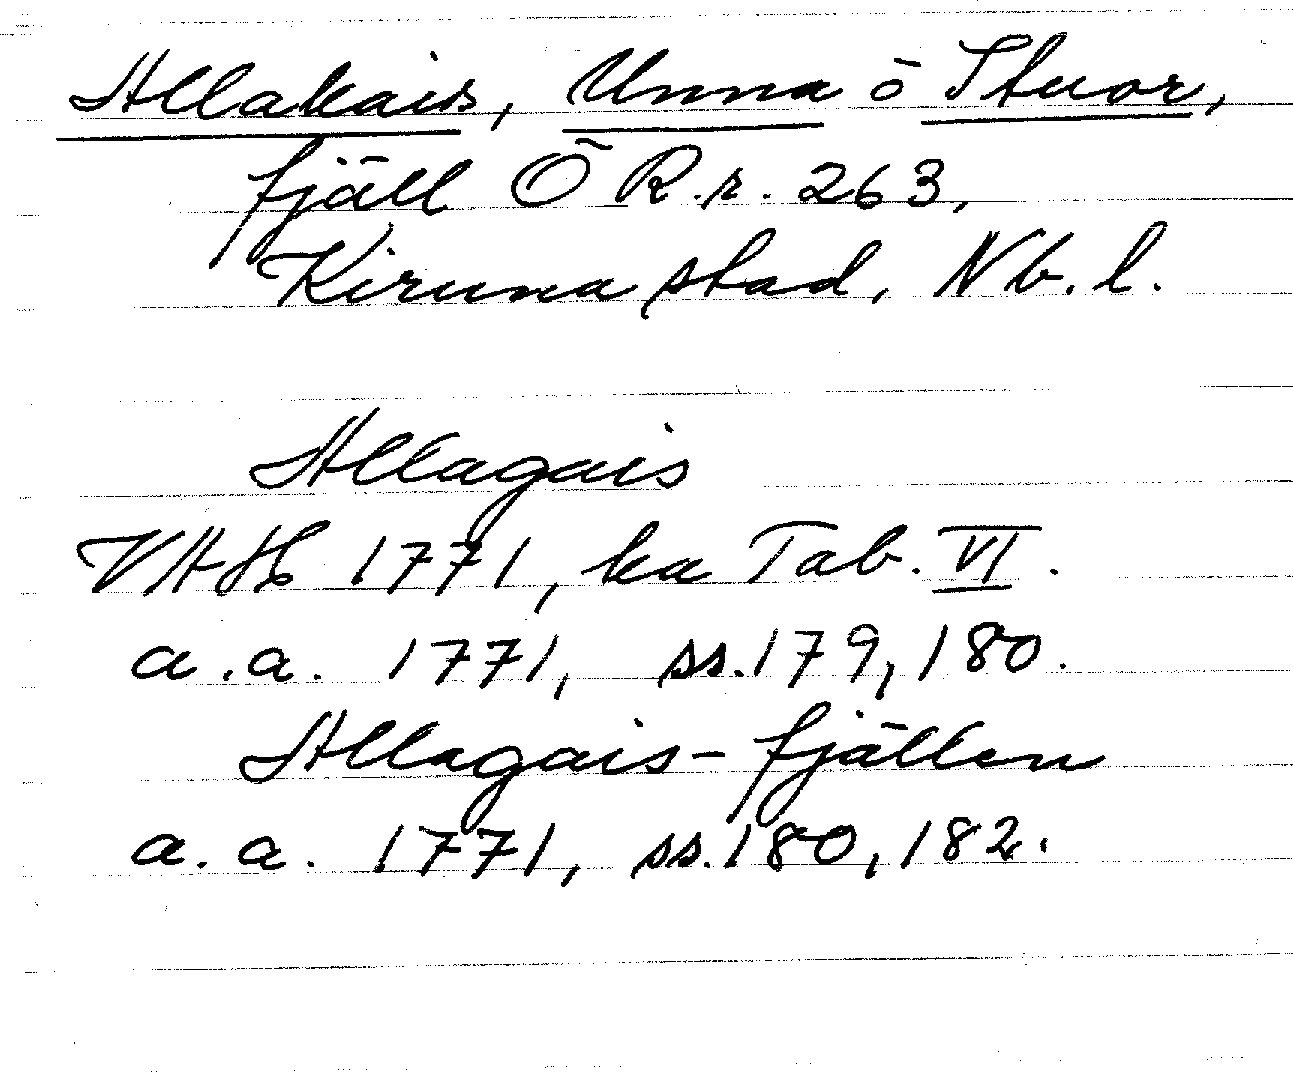 Allakais, Unna o Stuor,
fjäll Ö R.r. 263,
Kiruna stad, Nb. l.
Allagais
VAH 1771, ka Tab. VI.
a.a. 1771, ss. 179, 180.
Allagais-fjällen
a.a. 1771, ss. 180, 182.